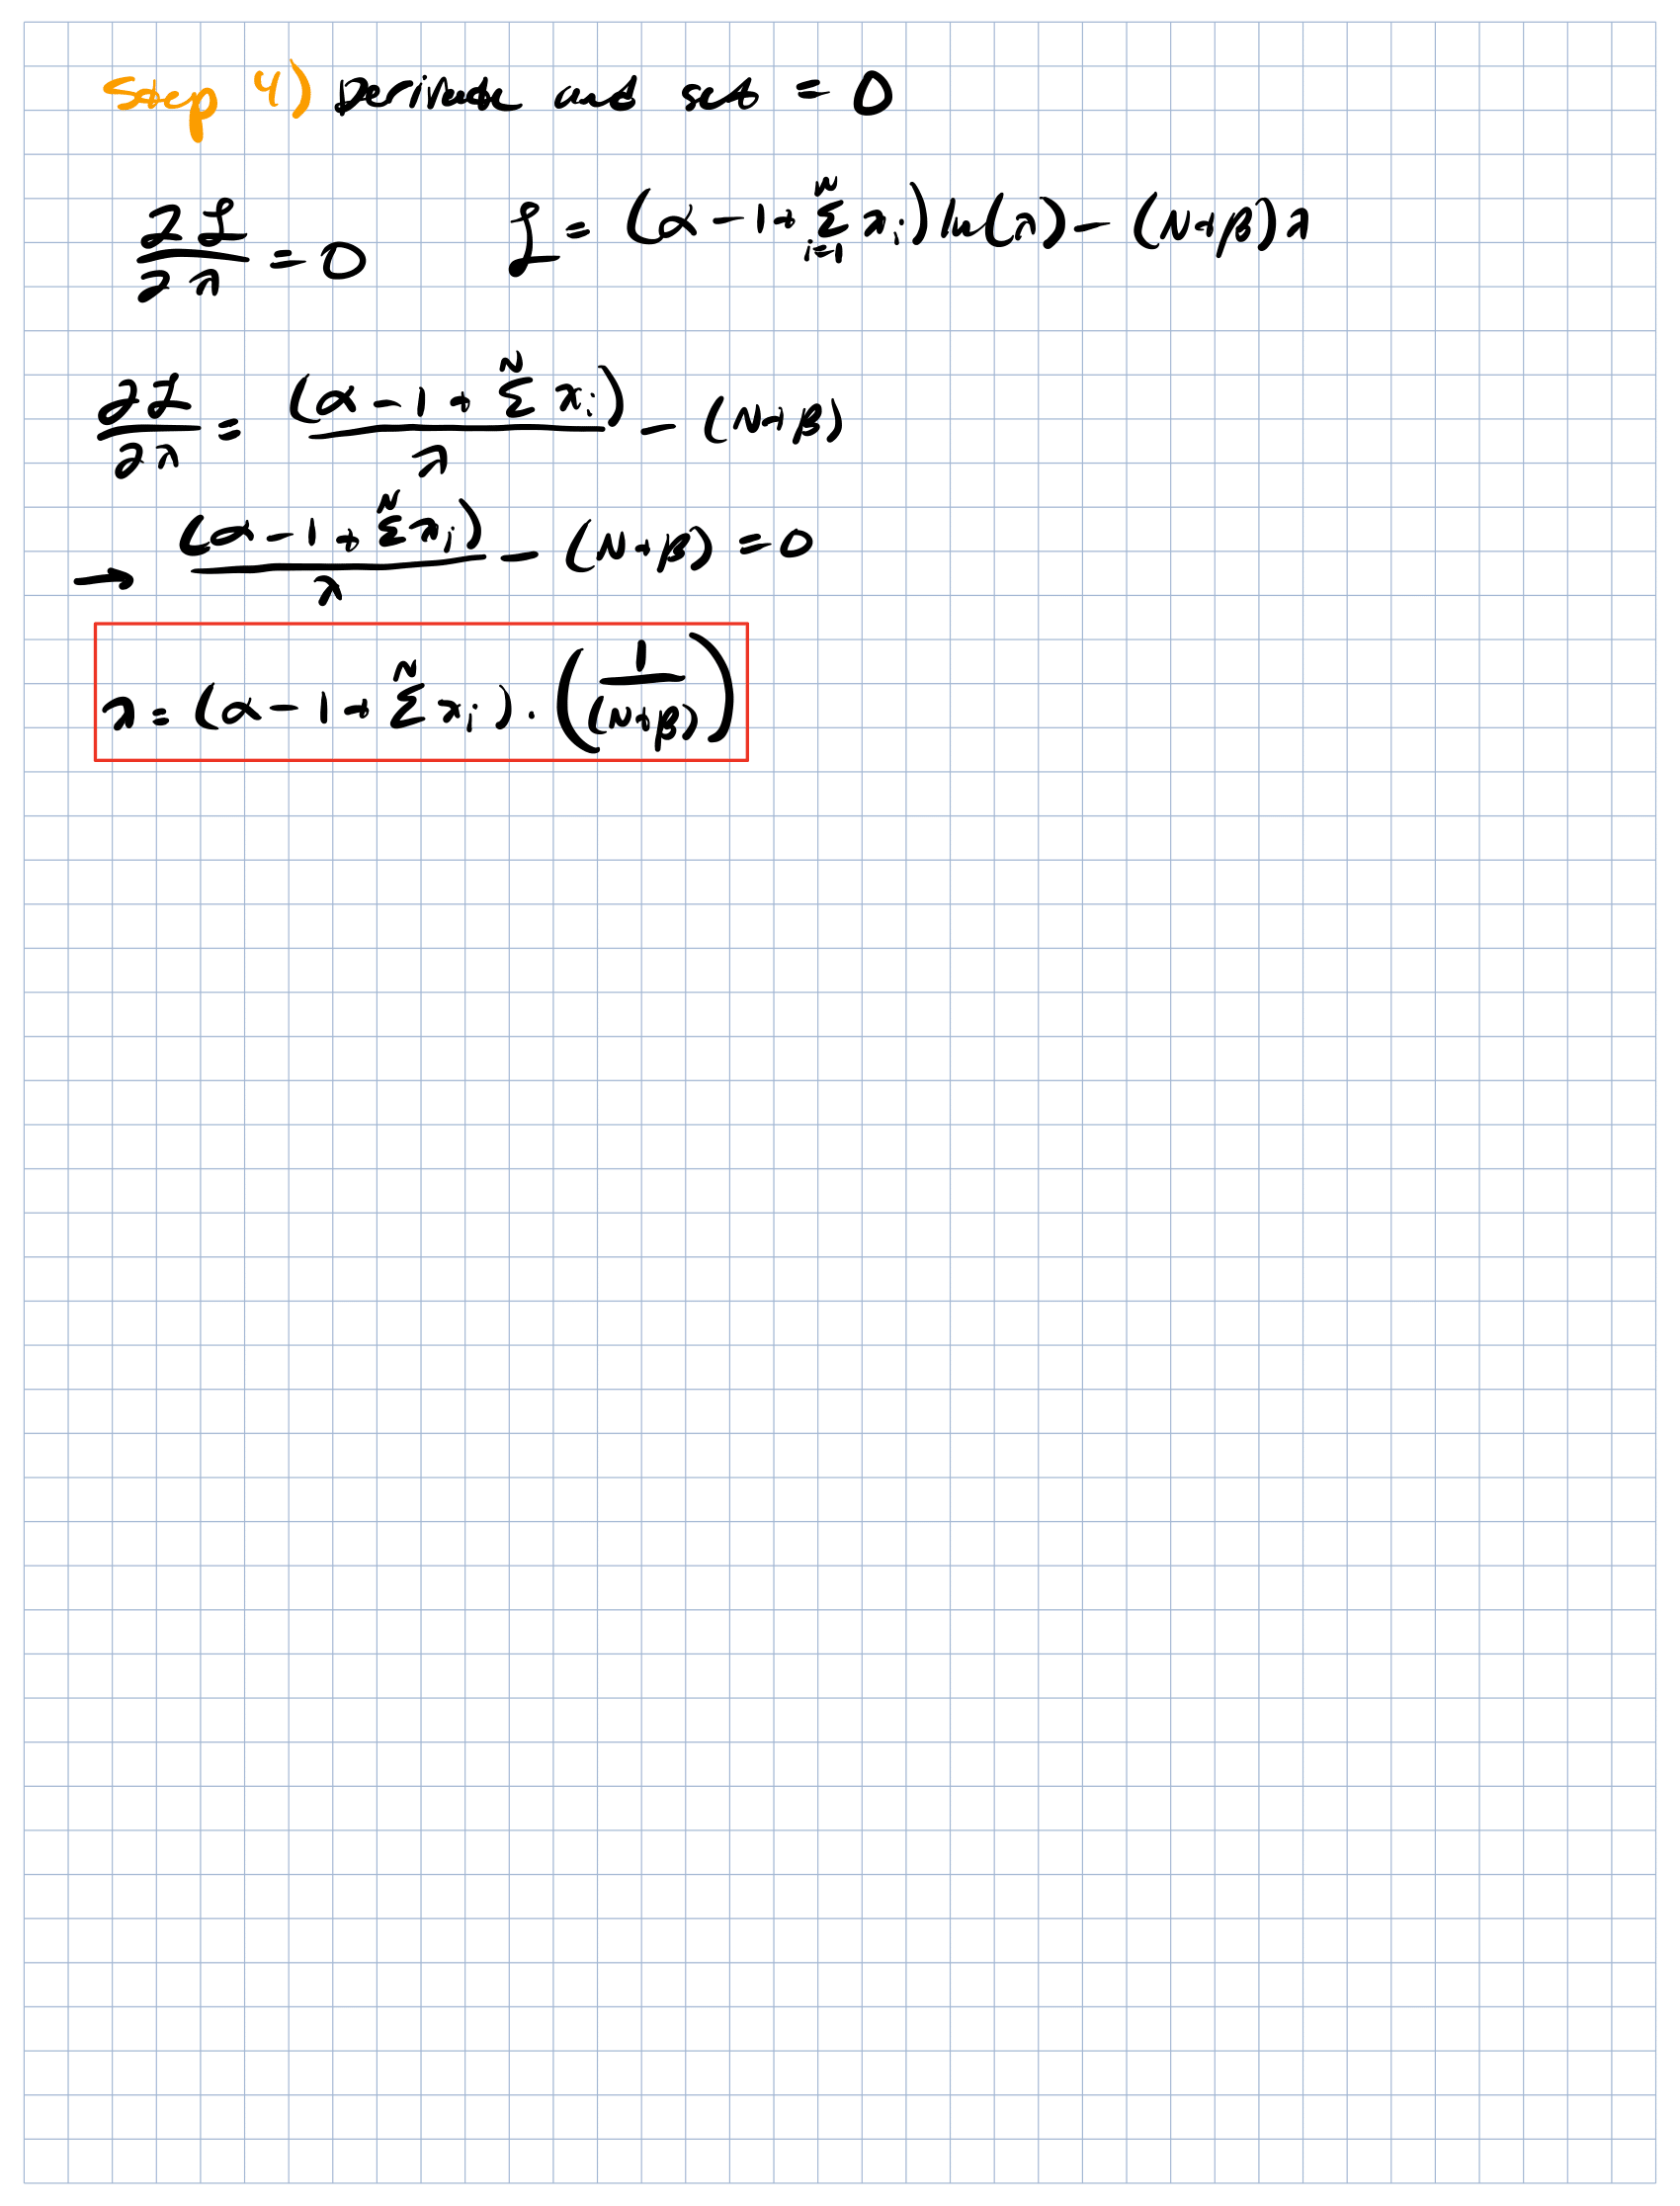 Step 4) Derivate and set = 0
∂ℒ/∂λ = 0    ℒ = (α - 1 + Σ_{i=1}^{N} x_i) ln(λ) - (N+β)λ
∂ℒ/∂λ = (α - 1 + Σ^{N} x_i)/λ - (N+β)
→ (α - 1 + Σ^{N} x_i)/λ - (N+β) = 0
λ = (α - 1 + Σ^{N} x_i) · (1/(N+β))